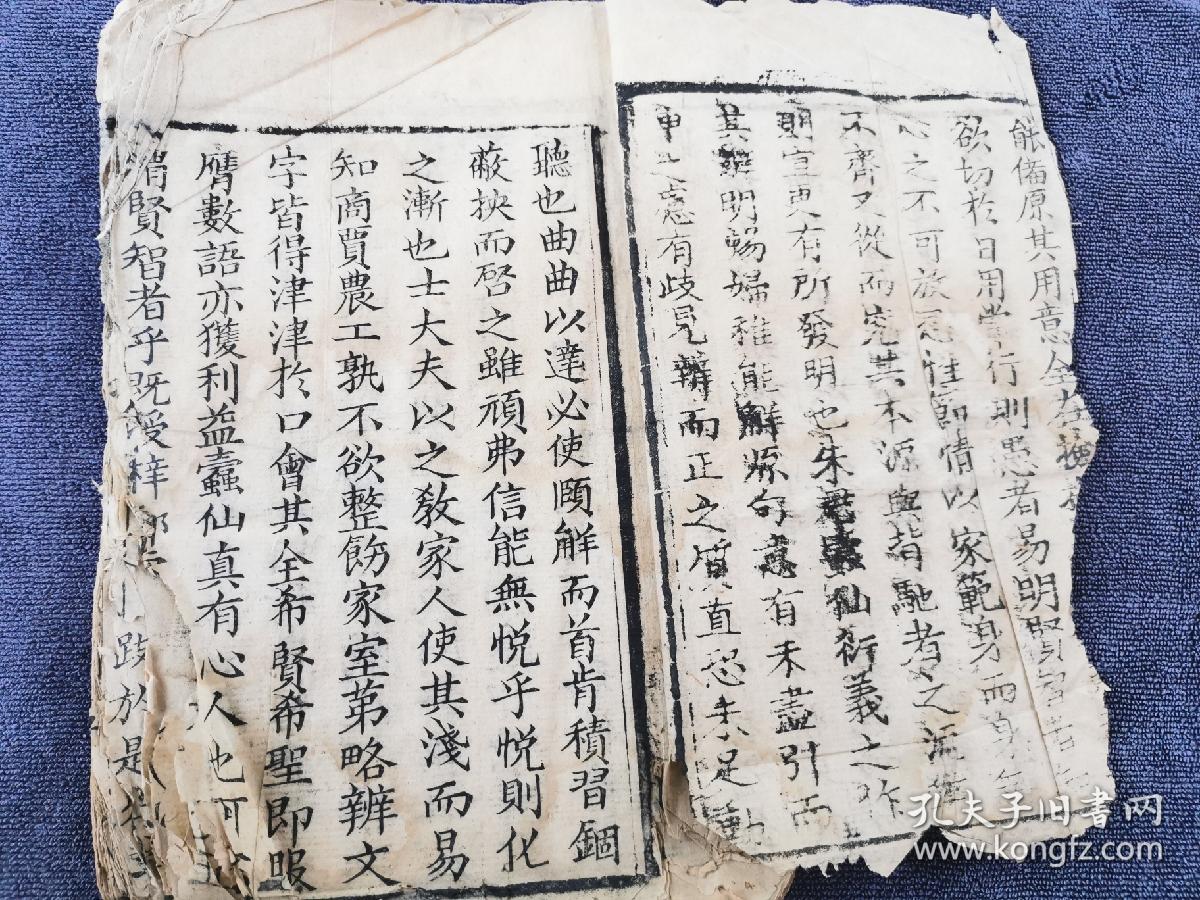 能備原其用意全在
欲切於日用常行則愚者易明賢智者
之不可放 情以家範身而身
不齊又從而究其本源與背馳者之流
明宣更有所發明也朱 仙衍義之作
其 明暢婦稚能解 句意有未盡引而
申之意有歧見辨而正之質直恐未足動
聽也曲曲以達必使頤解而首肯積習錮
蔽抉而啓之雖頑弗信能無悅乎悅則化
之漸也士大夫以之教家人使其淺而易
知商賈農工孰不欲整飭家室第略辨文
字皆得津津於口會其全希賢希聖即服
膺數語亦獲利益蠹仙真有心人也可
謂賢智者乎既授梓 跋於是
孔夫子旧書网
www.kongfz.com